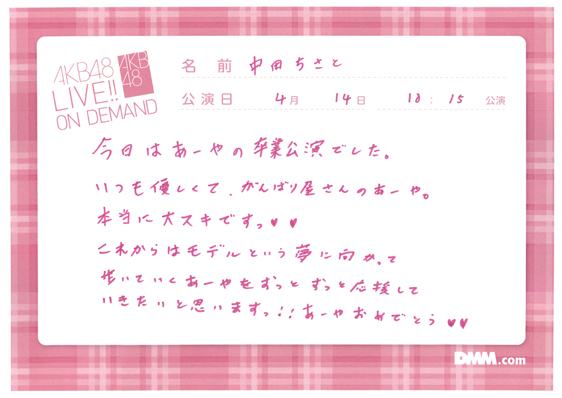 AKB48
LIVE!!
ON DEMAND
AKB
48
名前 中田ちさと
公演日 4月 14日 18:15 公演
今日はあーやの卒業公演でした。
いつも優しくて、がんばり屋さんのあーや。
本当に大スキですっ♥♥
これからはモデルという夢に向かって
歩いていくあーやをずっとずっと応援して
いきたいと思いますっ!!あーやおめでとう♥♥
DMM.com